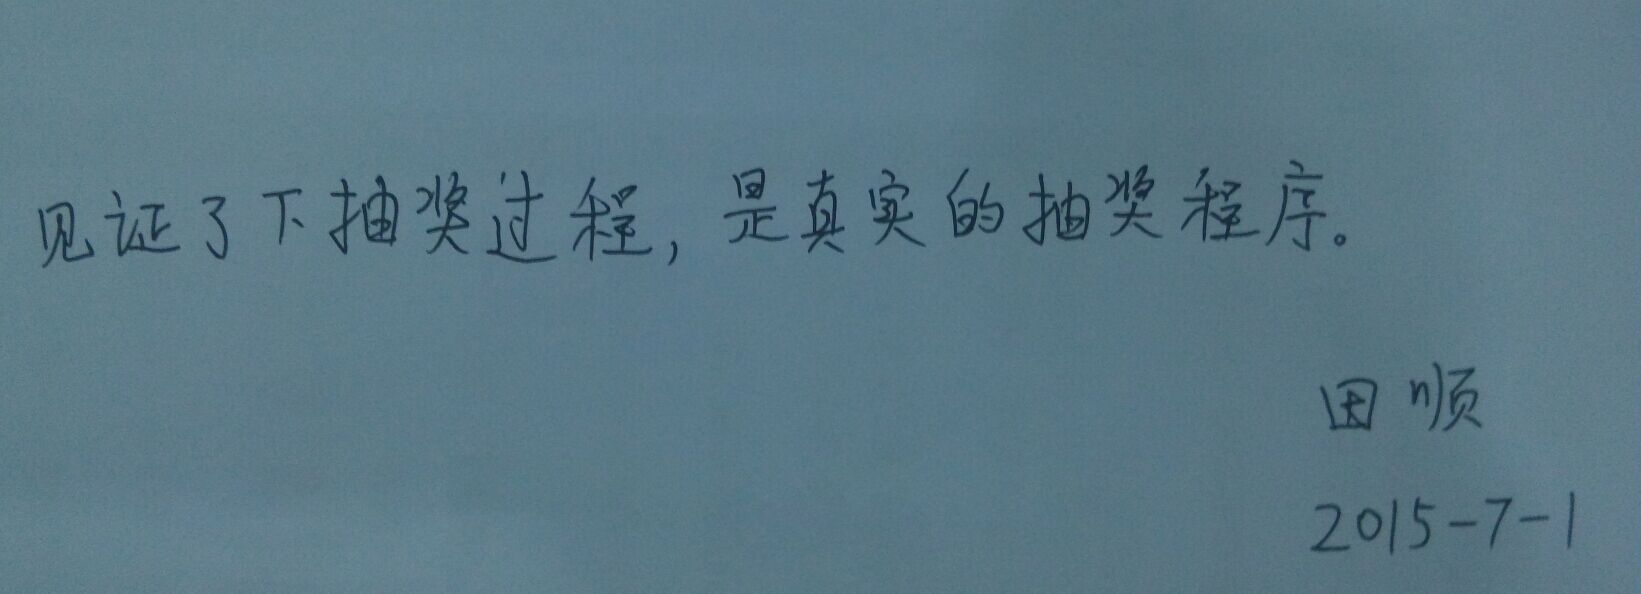 见证了下抽奖过程，是真实的抽奖程序。
田顺
2015-7-1